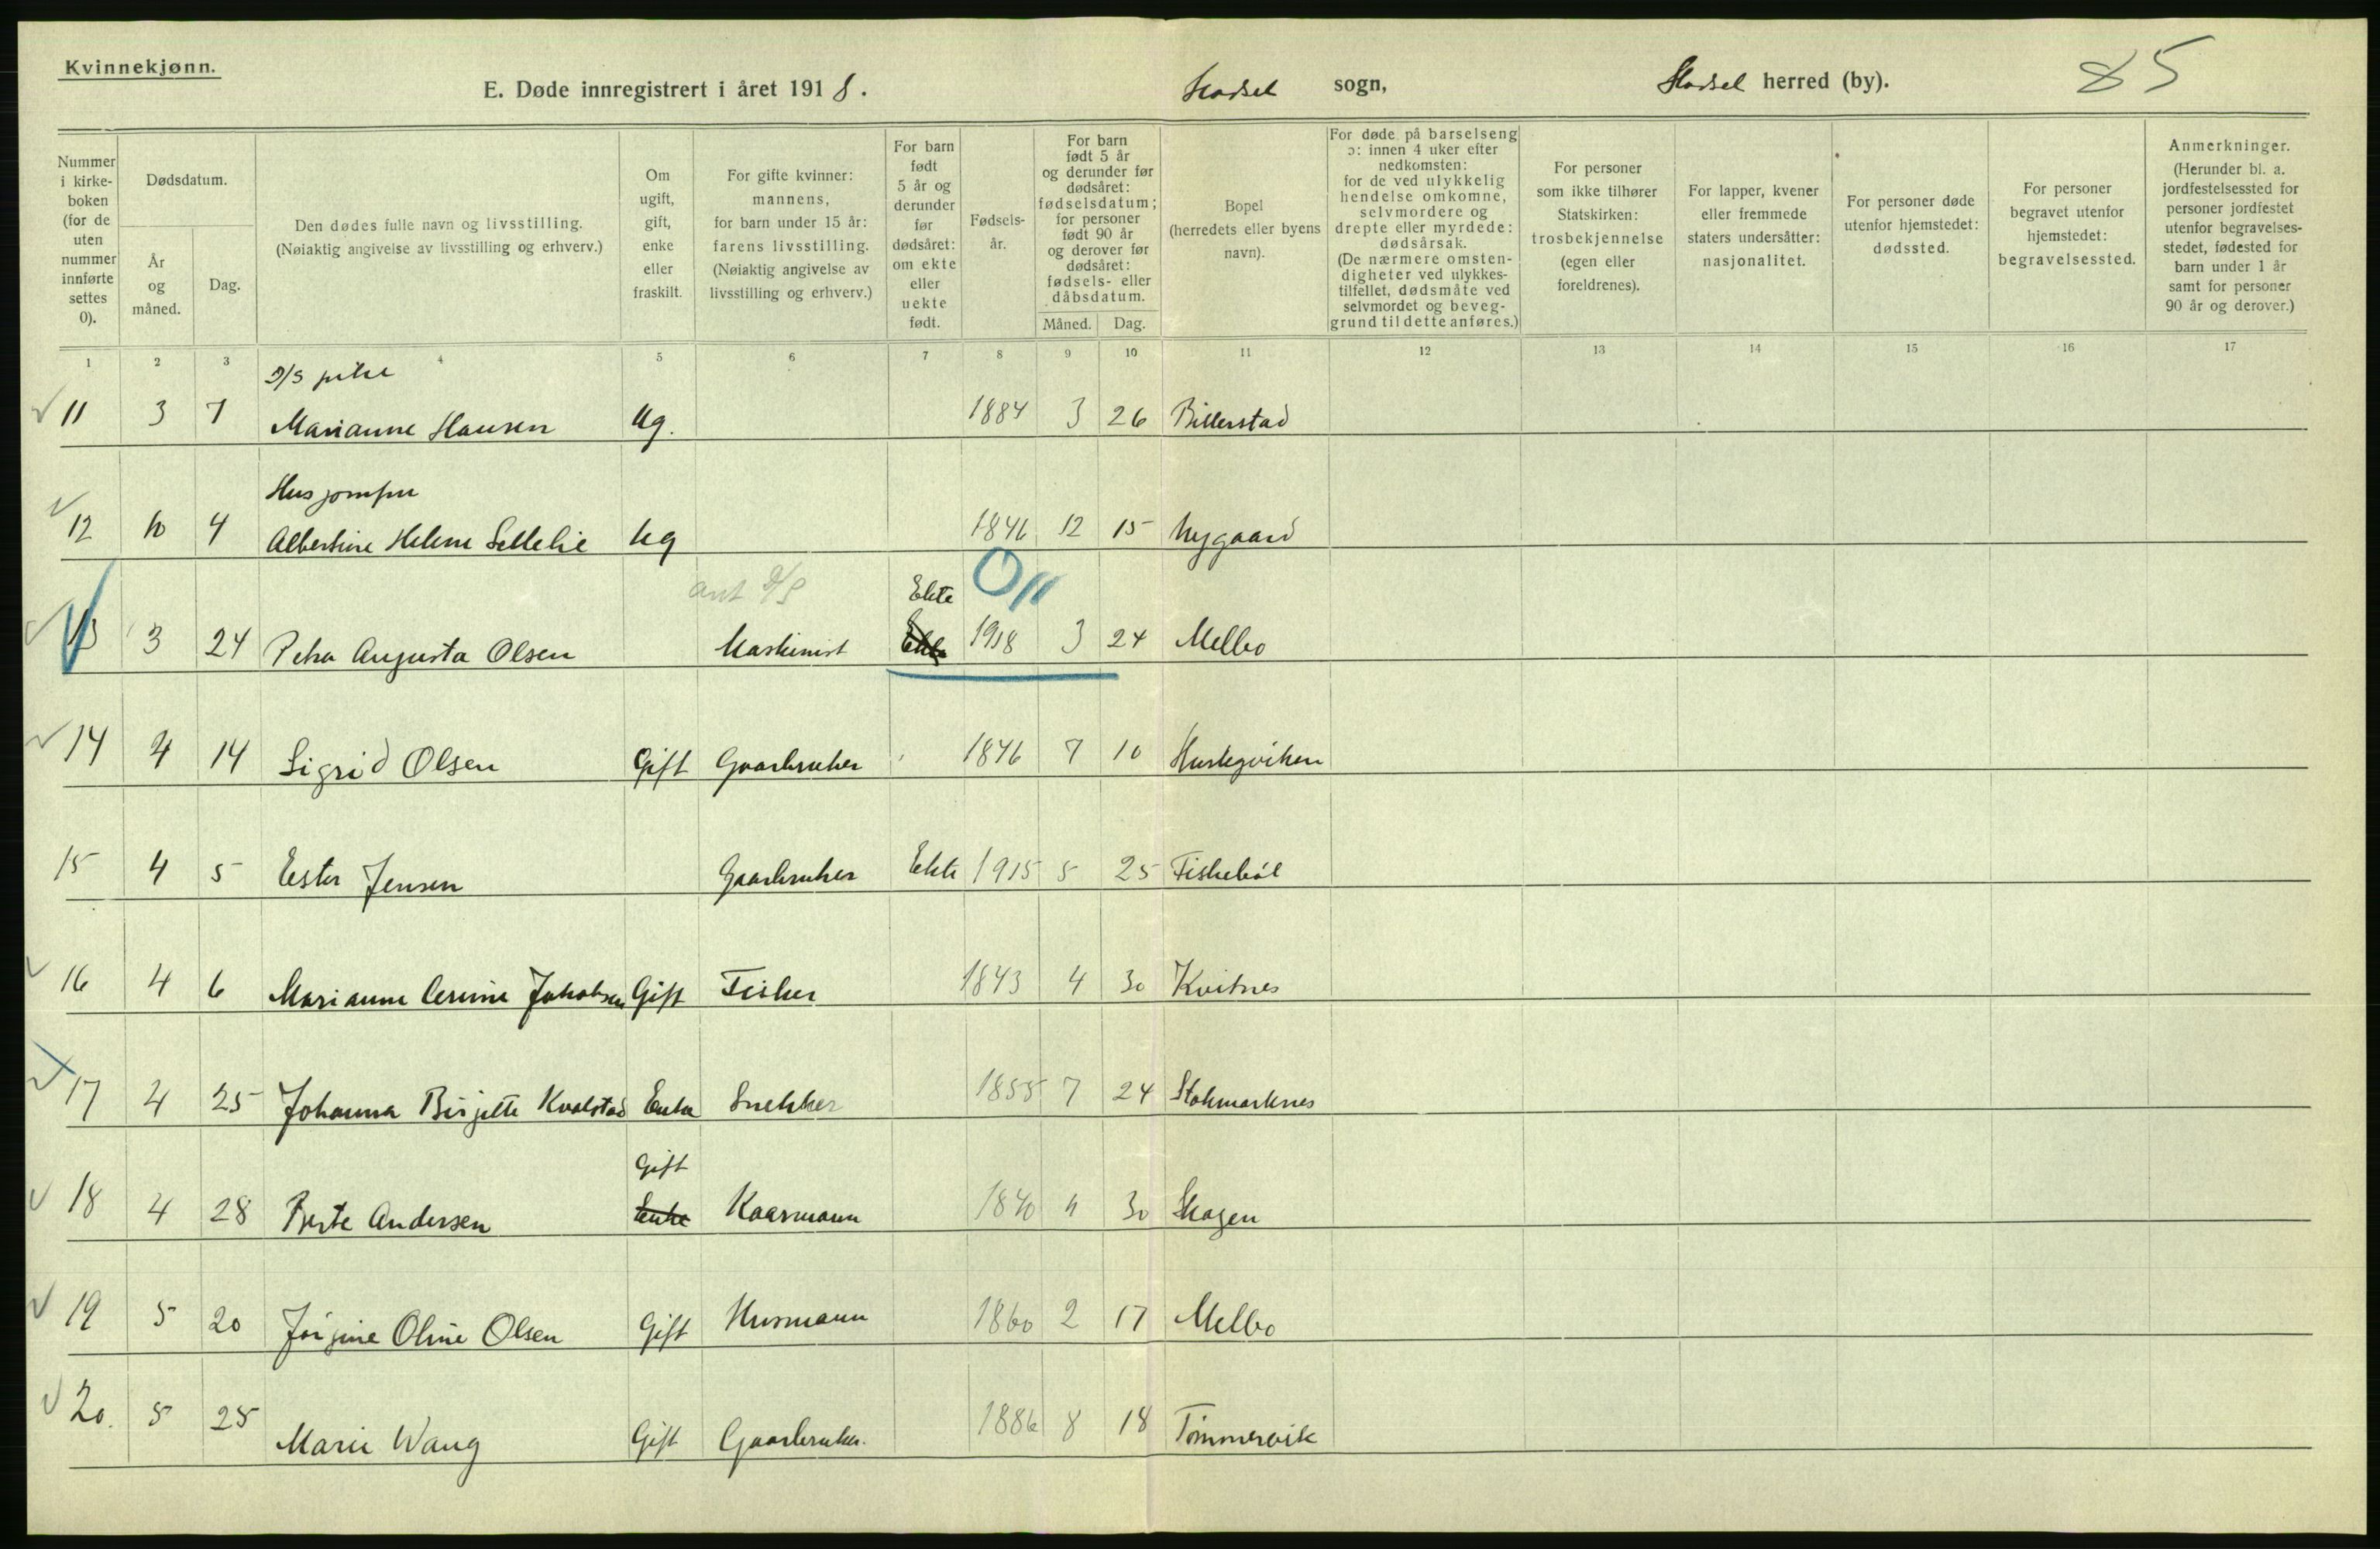 Kvinnekjønn.
E. Døde innregistrert i året 1918. Hadsel sogn, Hadsel herred (by). 85
Nummer i kirkeboken (for de uten nummer innførte settes 0).
Dødsdatum.
År og måned.
Dag.
Den dødes fulle navn og livsstilling.
(Nøiaktig angivelse av livsstilling og erhverv.)
Om ugift, gift, enke eller fraskilt.
For gifte kvinner: mannens, for barn under 15 år: farens livsstilling. (Nøiaktig angivelse av livsstilling og erhverv.)
For barn født 5 år og derunder før dødsåret: om ekte eller uekte født.
Fødselsår.
For barn født 5 år og derunder før dødsåret: fødselsdatum; for personer født 90 år og derover før dødsåret: fødsels- eller dåbsdatum.
Måned. Dag.
Bopel (herredets eller byens navn).
For døde på barselseng ɔ: innen 4 uker efter nedkomsten: for de ved ulykkelig hendelse omkomne, selvmordere og drepte eller myrdede: dødsårsak. (De nærmere omstendigheter ved ulykkestilfellet, dødsmåte ved selvmordet og beveggrund til dette anføres.)
For personer som ikke tilhører Statskirken: trosbekjennelse (egen eller foreldrenes).
For lapper, kvener eller fremmede staters undersåtter: nasjonalitet.
For personer døde utenfor hjemstedet: dødssted.
For personer begravet utenfor hjemstedet: begravelsessted.
Anmerkninger. (Herunder bl. a. jordfestelsessted for personer jordfestet utenfor begravelsesstedet, fødested for barn under 1 år samt for personer 90 år og derover.)
1 2 3 4 5 6 7 8 9 10 11 12 13 14 15 16 17
D/S pike
11 3 7 Marianne Hansen Ug. 1884 3 26 Billerstad
Husjomfru
12 10 4 Albertine Helene Ug 1846 12 15 Nygaard
ant D/S Ekte
13 3 24 Petra Augusta Olsen Maskinist Ekte 1918 3 24 Melbo
14 4 14 Sigrid Olsen Gift Gaarbruker 1846 7 10
15 4 5 Ester Jensen Gaarbruker Ekte 1915 5 25 Fiskebøl
16 4 6 Marianne Jakobsen Gift Fisker 1843 4 30 Kvitnes
17 4 25 Johanna Birjette Kvalstad Enke Snekker 1855 7 24 Stokmarknes
Gift
18 4 28 Berte Andersen Enke Kaarmann 1840 4 30 Skagen
19 5 20 Jørgine Oline Olsen Gift Husmann 1860 2 17 Melbo
20. 5 25 Marie Wang Gift Gaarbruker. 1886 8 18 Tømmervik